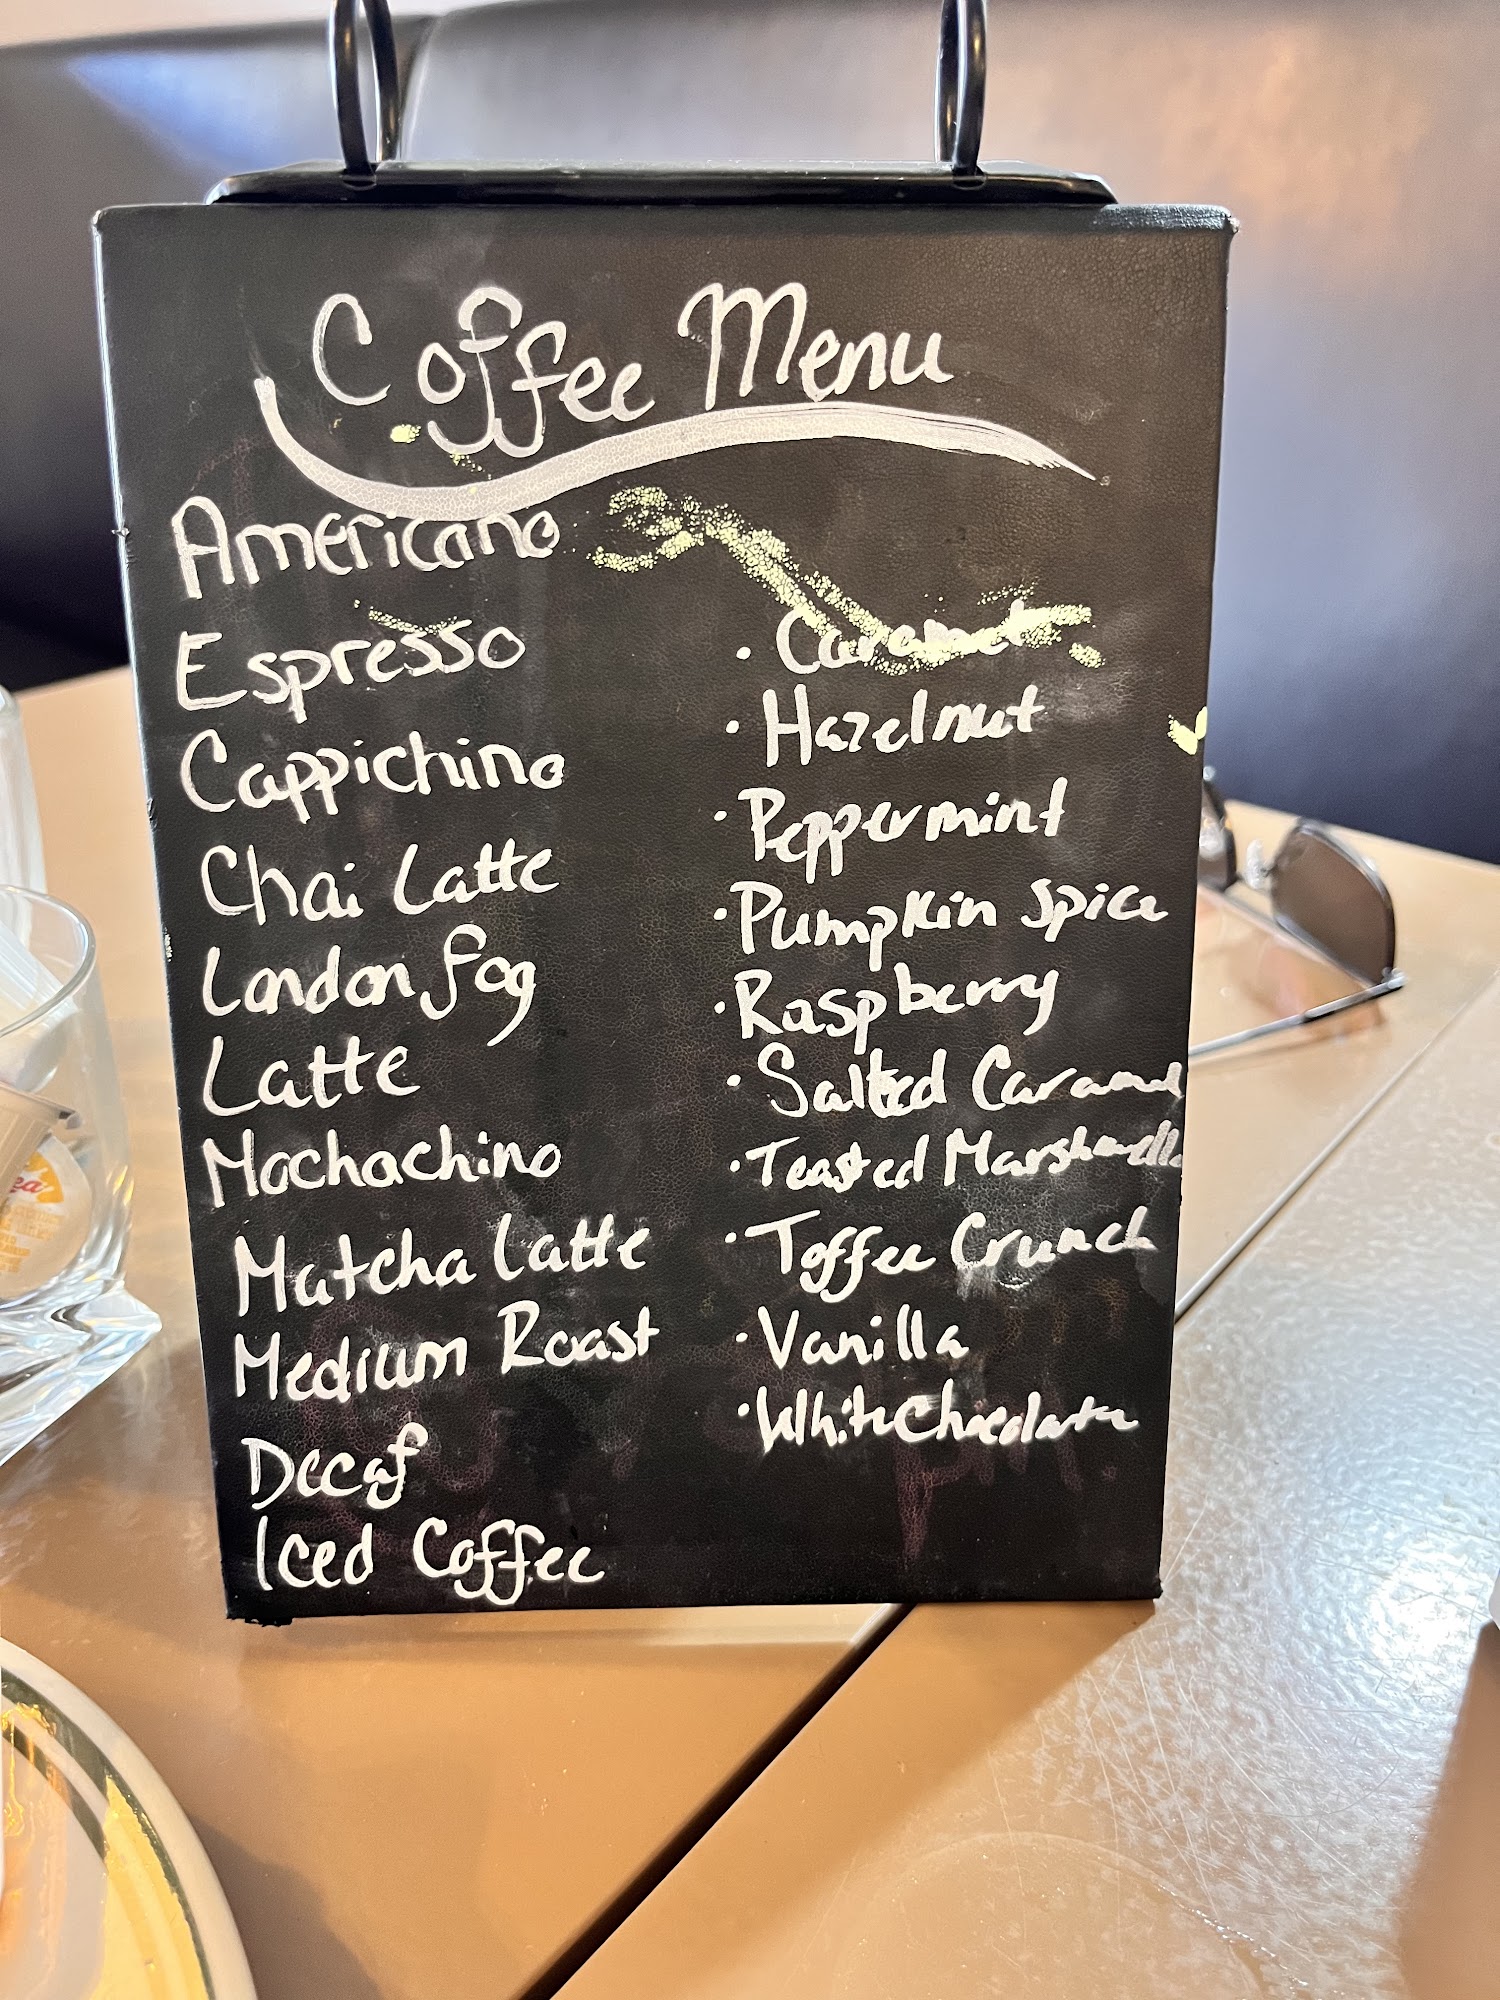 Coffee Menu
Americano
Espresso
Cappichino
Chai Latte
London fog
Latte
Mochachino
Matcha Latte
Medium Roast
Decaf
Iced Coffee
· Caramel
· Hazelnut
· Peppermint
· Pumpkin Spice
· Raspberry
· Salted Caramel
· Toasted Marshmallo
· Toffee Crunch
· Vanilla
· White Chocolate